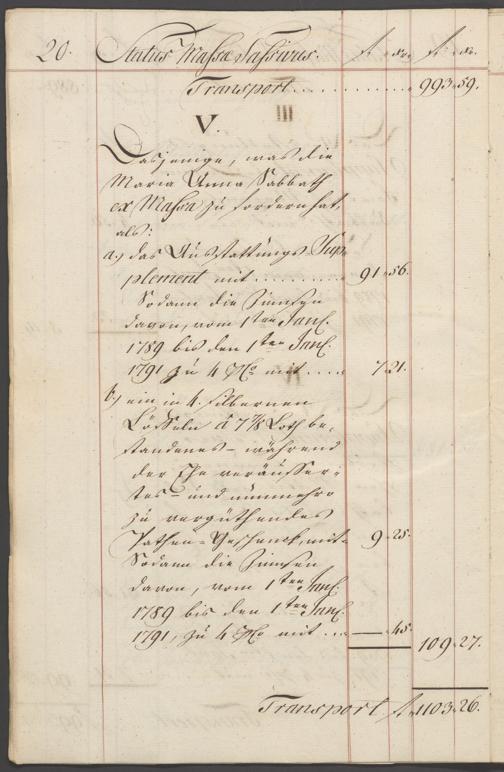 20. Status Massæ Passivus. f. xr. f. xr.
Transport . . . . . . . . . . . . 993. 59.
V.
Dasjenige, was die
Maria Anna Sabbath
ex Massa zu fordern hat,
als:
a.) das Ausstattungs Sup-
plement mit . . . . . . . . . . 91. 56.
Sodann die Zinnsen
davon, vom 1ten Jan.
1789 bis den 1ten Jan.
1791 zu 4 pCto mit . . . . 7. 21.
b.) ein in 4. silbernen
Löffeln à 7 7/8 Loth be-
standenes – während
der Ehe veräusser-
tes – und nunmehro
zu vergüthendes
Pathen-Geschenk, mit- 9. 25.
Sodann die Zinnsen
davon, vom 1ten Jan.
1789 bis den 1ten Jan.
1791, zu 4 pCto mit . . . — 45.
109. 27.
Transport f. 1103. 26.